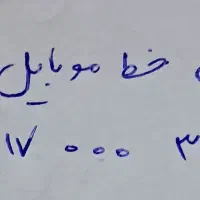 خط موبایل
۱۷ ۰۰۰ ۳